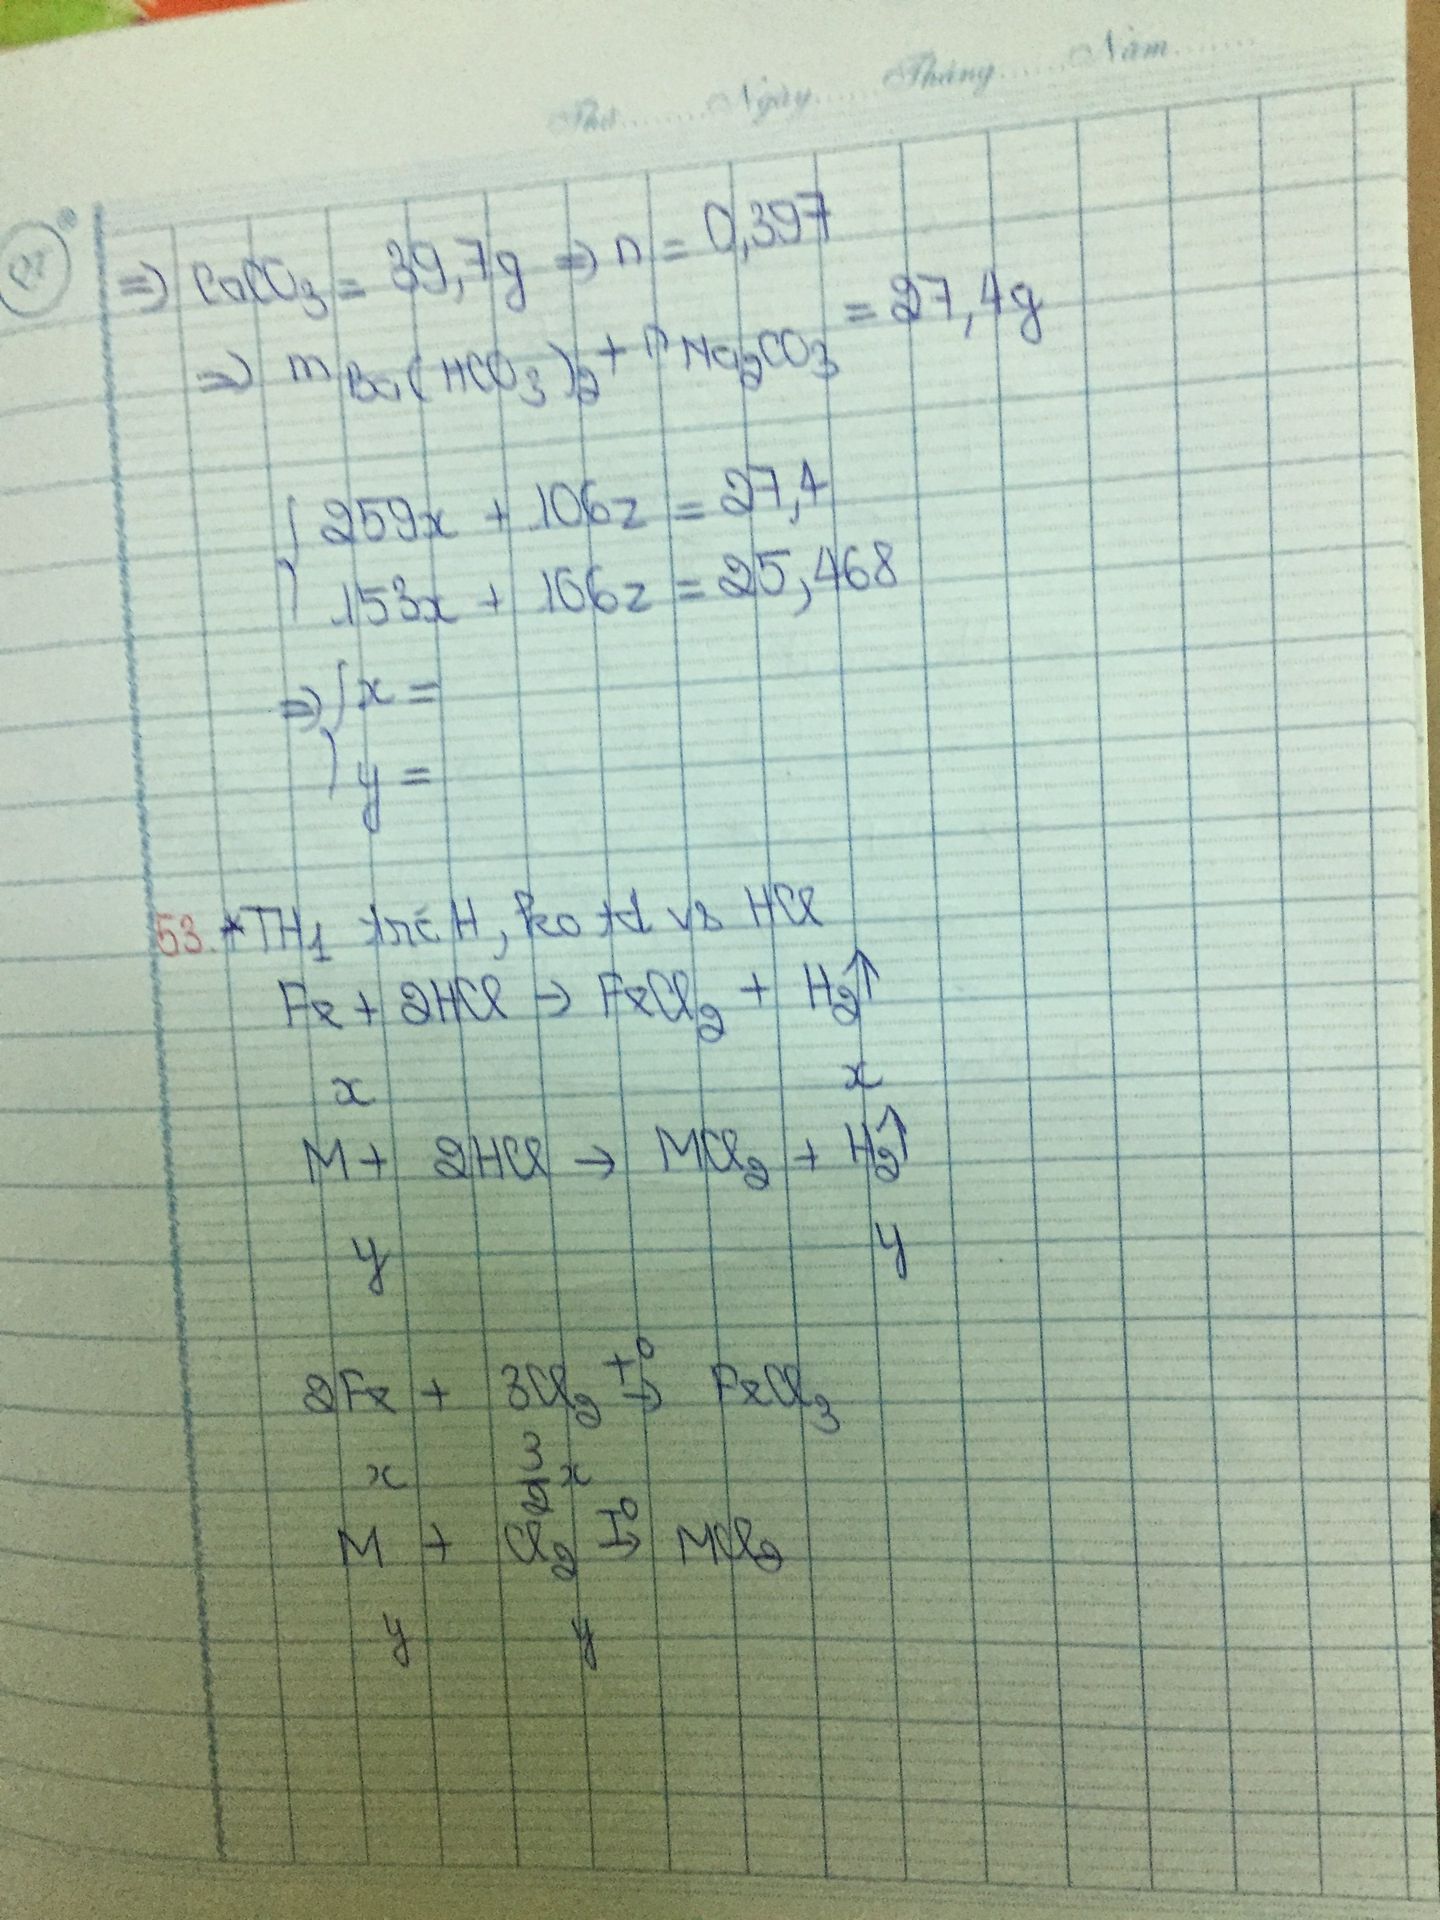 Thứ.......Ngày......Tháng......Năm.......
=> CaCO3 = 39,7g => n = 0,397
=> m Ba(HCO3)2 + m Na2CO3 = 27,4g
{ 259x + 106z = 27,4
153x + 106z = 25,468
=> { x =
y =
53. *TH1 trc H, ko td vs HCl
Fe + 2HCl → FeCl2 + H2↑
x x
M + 2HCl → MCl2 + H2↑
y y
2Fe + 3Cl2 t° → FeCl3
x 3/2 x
M + Cl2 t° → MCl2
y y